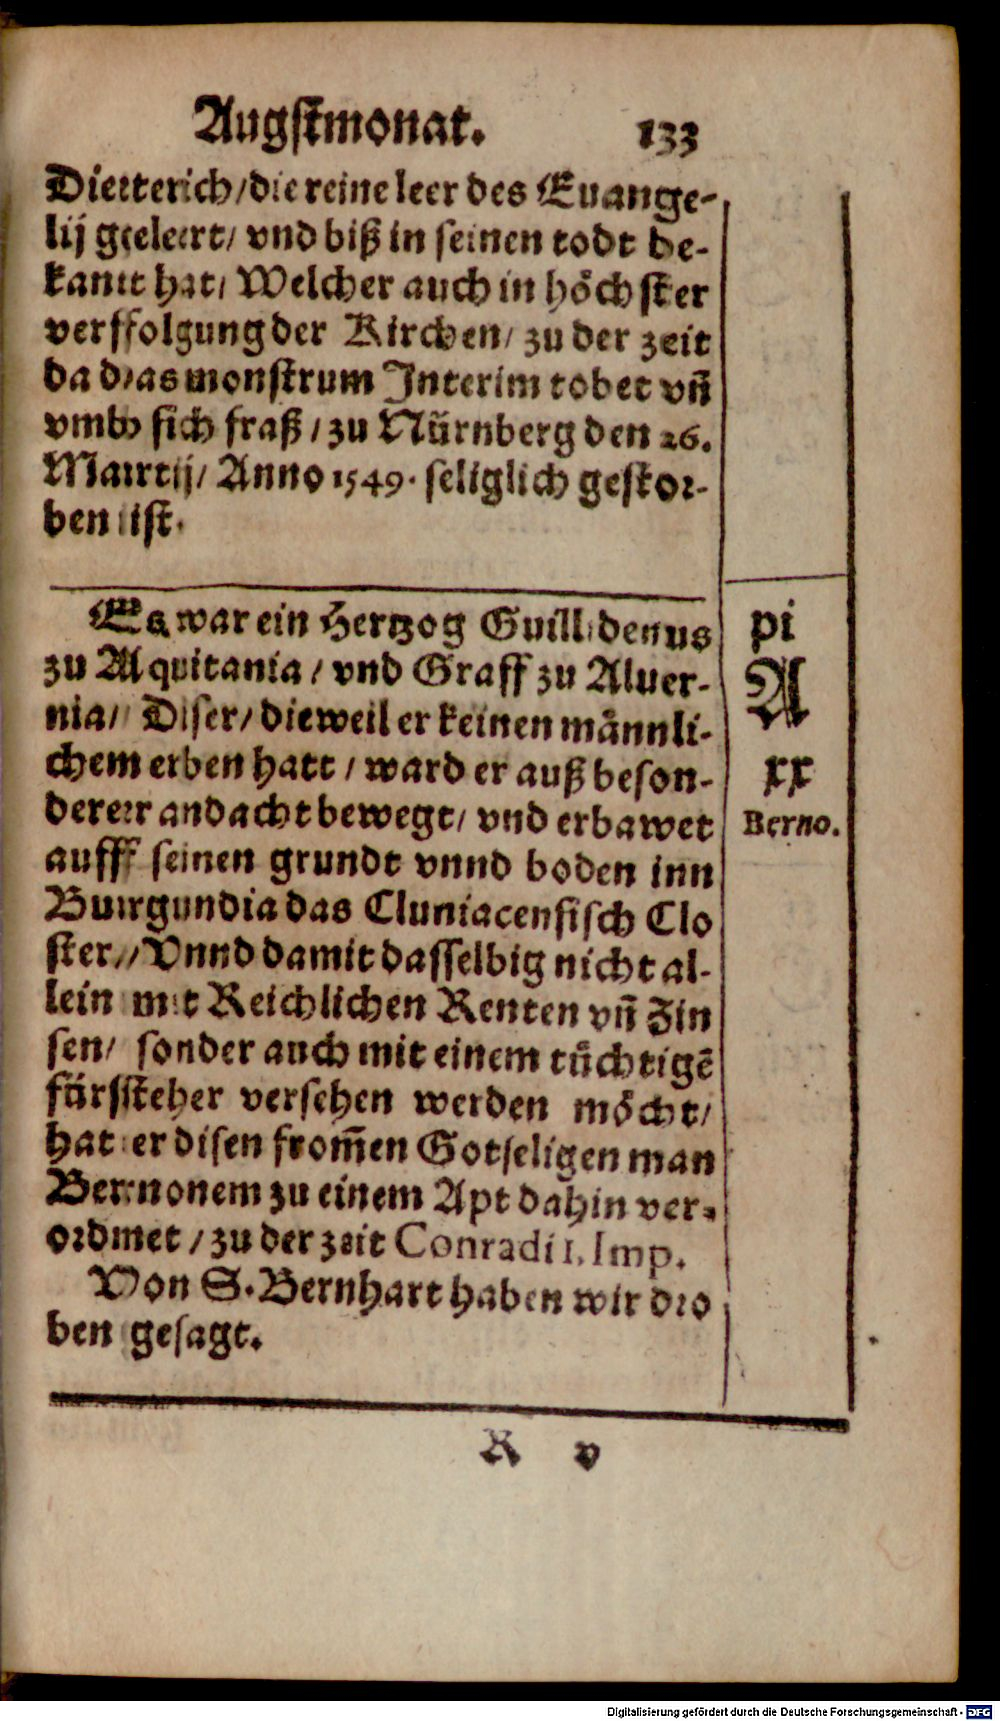 Augstmonat. 133
Dietterich/die reine leer des Euange-
lij geleert/ vnd biß in seinen todt be-
kant hat/ Welcher auch in höchster
verffolgung der Kirchen/ zu der zeit
da das monstrum Interim tobet vñ
vmb sich fraß/ zu Nürnberg den 26.
Martij/ Anno 1549. seliglich gestor-
ben ist.
Es war ein Hertzog Guilldenus
zu Aquitania/ vnd Graff zu Aluer-
nia/ Diser/ dieweil er keinen männli-
chem erben hatt/ ward er auß beson-
derer andacht bewegt/ vnd erbawet
auff seinen grundt vnnd boden inn
Burgundia das Cluniacensisch Clo
ster/ Vnnd damit dasselbig nicht al-
lein mit Reichlichen Renten vñ Zin
sen/ sonder auch mit einem tüchtigẽ
fürsteher versehen werden möcht/
hat er disen from̃en Gotseligen man
Bernonem zu einem Apt dahin ver-
ordnet/ zu der zeit Conradi I. Imp.
Von S. Bernhart haben wir dro
ben gesagt.
pi
A
xx
Berno.
R v
Digitalisierung gefördert durch die Deutsche Forschungsgemeinschaft - DFG